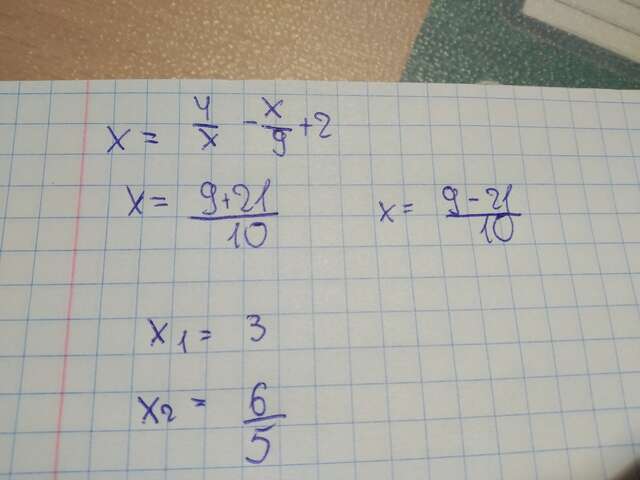 x = 4/x - x/9 + 2
x = (9+21)/10    x = (9-21)/10
x1 = 3
x2 = 6/5